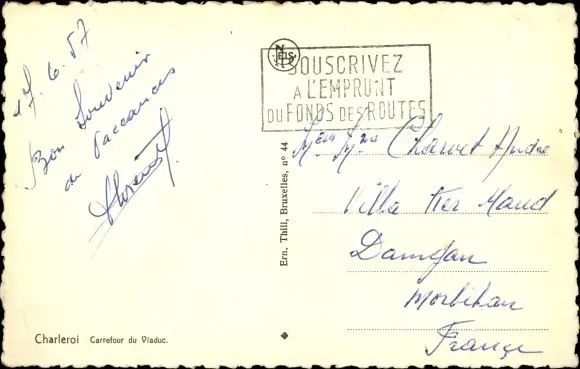 17.6.57
Bon Souvenir
de Vaccances
NELS
SOUSCRIVEZ
A L'EMPRUNT
DU FONDS DES ROUTES
Charvet Andre
Villa Ker Maud
Damgan
Morbihan
France
Ern. Thill, Bruxelles, n° 44
Charleroi Carrefour du Viaduc.